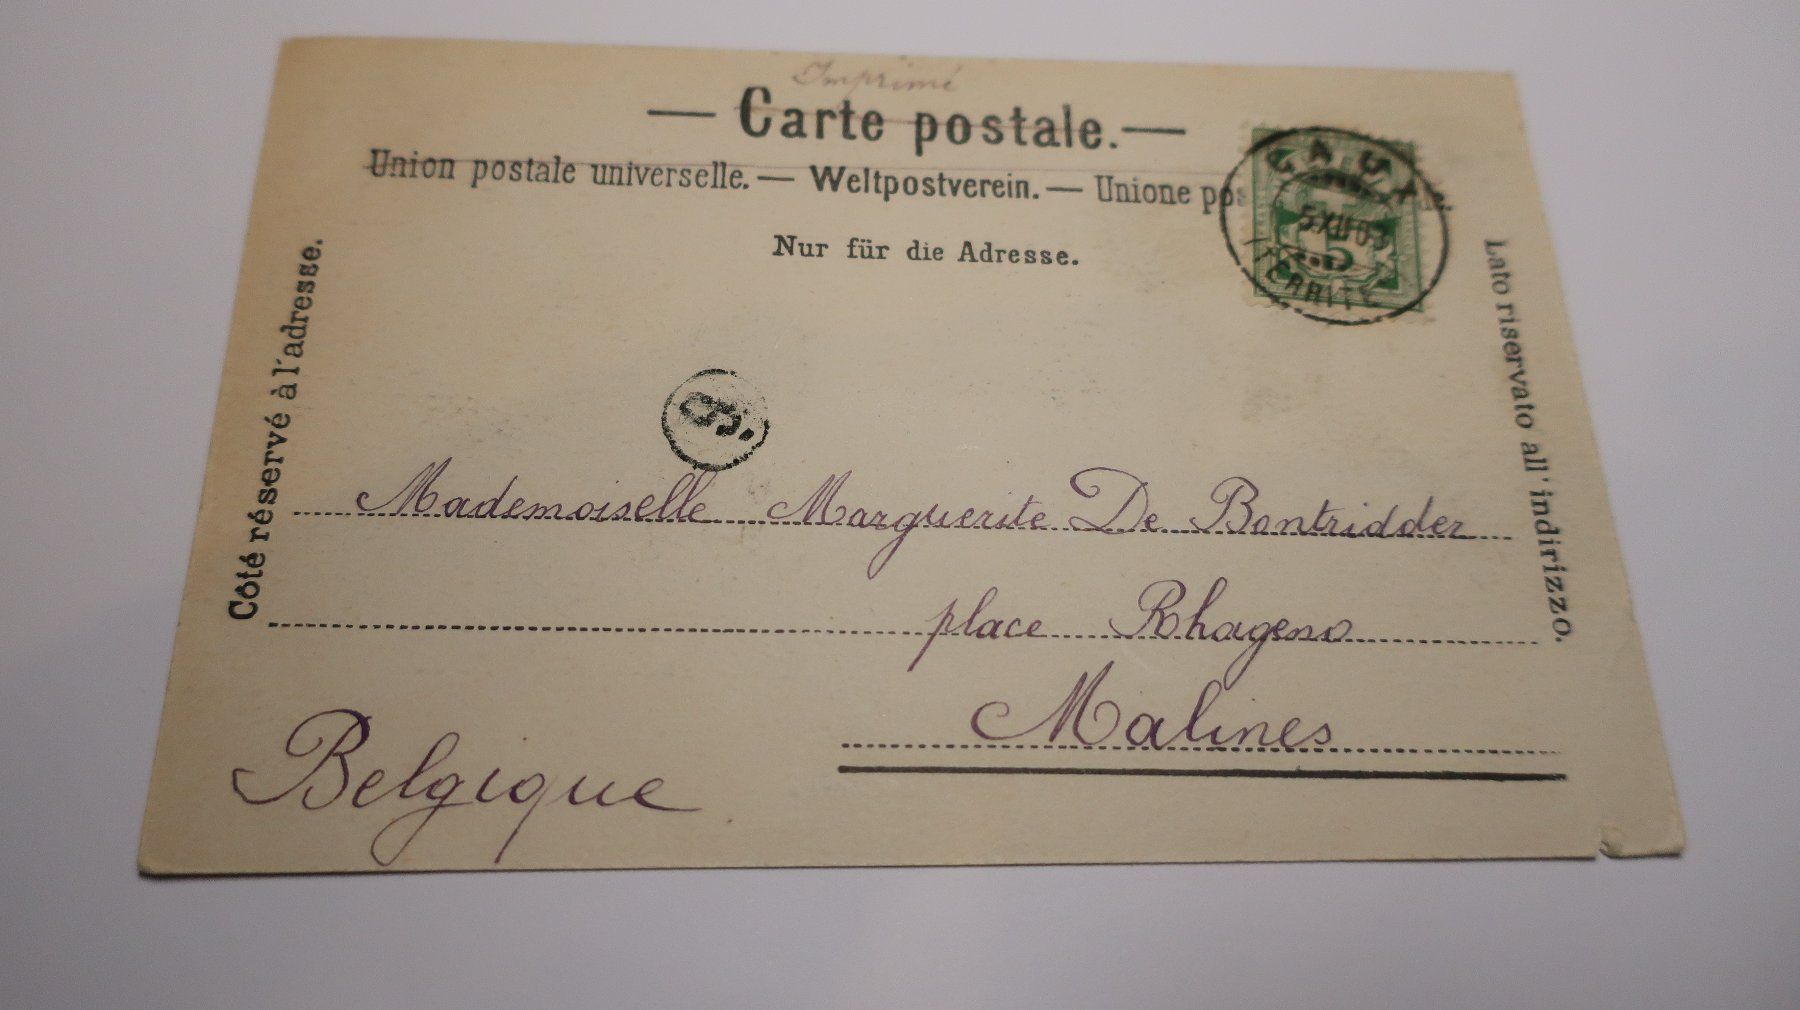 Imprimé
— Carte postale. —
Union postale universelle. — Weltpostverein. — Unione pos
Nur für die Adresse.
Côté réservé à l'adresse.
Lato riservato all' indirizzo.
CAUX
5 XII 03
TERRITET
5
Mademoiselle Marguerite De Bontridder
place Rhageno
Malines
Belgique